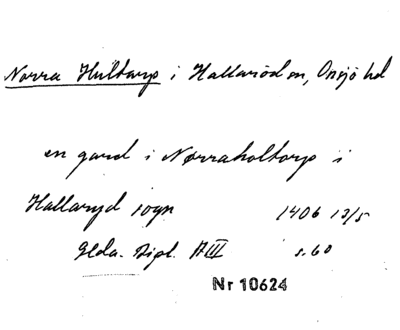 Norra Hultarp i Hallaröd sn, Onsjö hd
en gard i Nørraholtorp i
Hallaryd sogn 1406 13/5
Ælda. Dipl. A III s. 60
Nr 10624